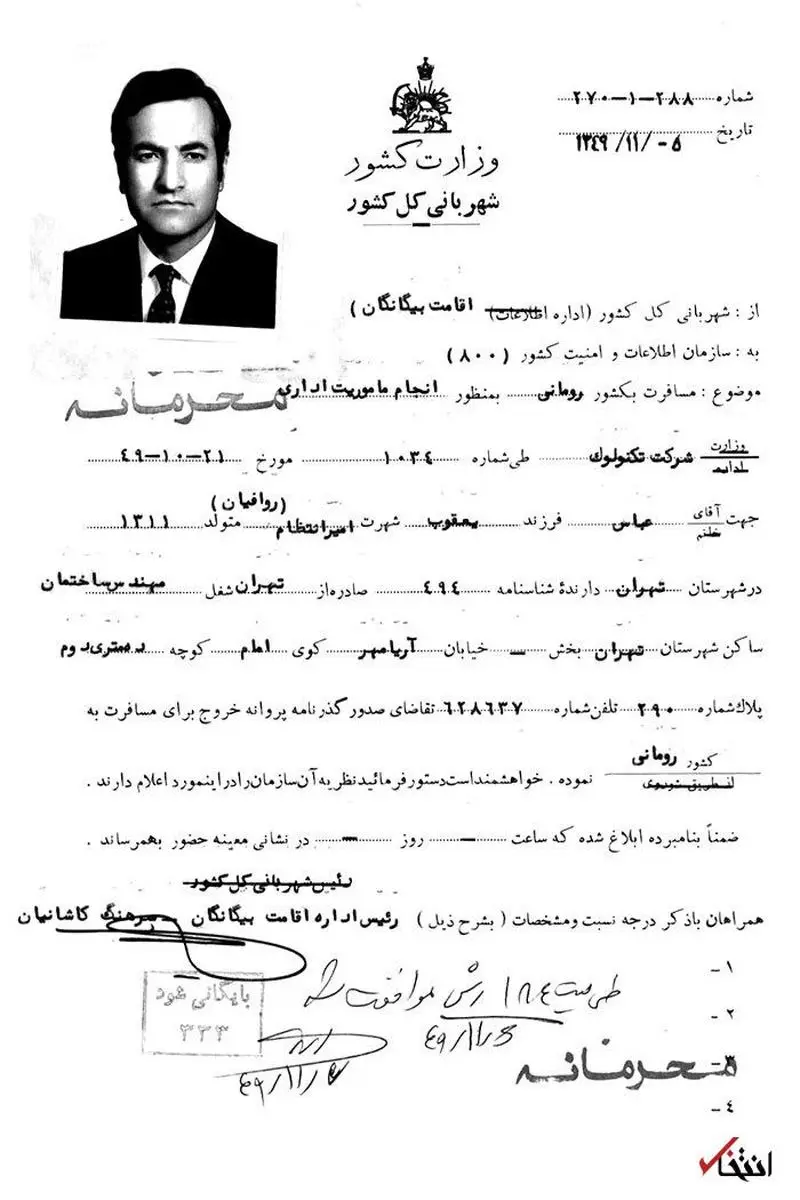 شماره ۲۸۸-۱-۲۷۰
تاریخ ۱۳۴۹/۱۱/-۵
وزارت کشور
شهربانی کل کشور
از : شهربانی کل کشور (اداره اطلاعات) اقامت بیگانگان )
به : سازمان اطلاعات و امنیت کشور (۸۰۰)
موضوع : مسافرت بکشور رومانی بمنظور انجام ماموریت اداری
محرمانه
وزارت
اداره
شرکت تکنولوک طی شماره ۱۰۳۴ مورخ ۲۱-۱۰-۴۹
(روافیان)
جهت آقای خانم عباس فرزند یعقوب شهرت امیرانتظام متولد ۱۳۱۱
در شهرستان تهران دارندهٔ شناسنامه ۴۹۴ صادره از تهران شغل مهندس ساختمان
ساکن شهرستان تهران بخش — خیابان آریامهر کوی امام کوچه رستری دوم
پلاک شماره ۲۹۰ تلفن شماره ۶۲۸۶۳۷ تقاضای صدور گذرنامه پروانه خروج برای مسافرت به
کشور رومانی
نموده . خواهشمند است دستور فرمائید نظریه آن سازمان را در اینمورد اعلام دارند .
ضمناً بنامبرده ابلاغ شده که ساعت — روز — در نشانی معینه حضور بهمرساند .
رئیس شهربانی کل کشور
همراهان باذکر درجه نسبت و مشخصات ( بشرح ذیل ) رئیس اداره اقامت بیگانگان سرهنگ کاشانیان
۱ -
موافقت شد
۲ -
۴۹/۱۱/۶
بایگانی شود
۳۳۳
۴۹/۱۱/۶
۳ -
محرمانه
۴ -
انتخاب